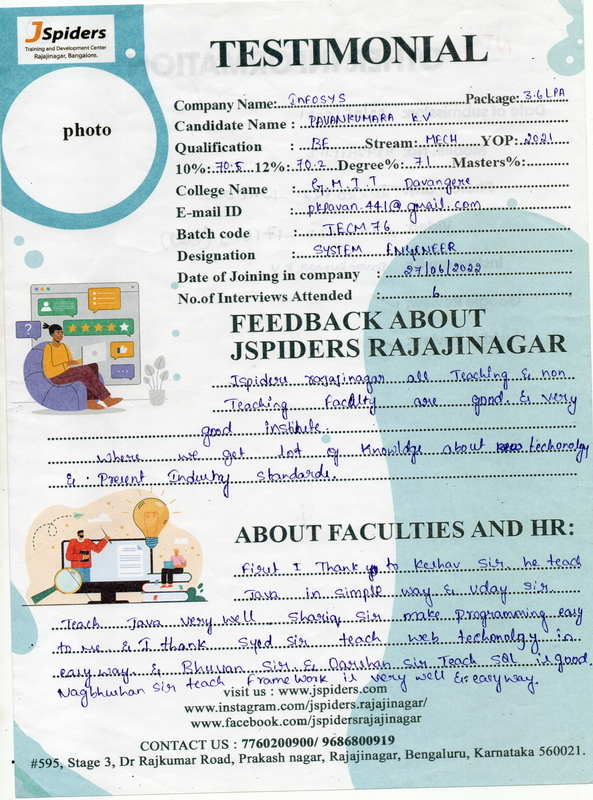 JSpiders
Training and Development Center
Rajajinagar, Bangalore.
TESTIMONIAL
photo
Company Name: INFOSYS Package: 3.6LPA
Candidate Name : PAVANKUMARA K.V
Qualification : BE Stream: MECH YOP: 2021
10%: 70.5 12%: 70.2 Degree%: 71 Masters%:
College Name : G.M.I.T Davangere
E-mail ID : pkpavan.441@gmail.com
Batch code : JECM76
Designation : SYSTEM ENGINEER
Date of Joining in company 27/06/2022
No.of Interviews Attended : 6
FEEDBACK ABOUT
JSPIDERS RAJAJINAGAR
Jspiders rajajinagar all Teaching & non
Teaching Faculty are good & very
good institute.
where we get lot of knowldge about techonolgy
& Present Industry standards.
ABOUT FACULTIES AND HR:
First I Thank to Keshav Sir he teach
Java in simple way & Uday Sir
Teach Java very well. Shariq Sir make Programming easy
to me & I thank Syed Sir teach web techonolgy in
easy way & Bhuvan Sir & Darshan Sir Teach SQL is good.
Nagbhushan Sir teach Framework is very well & easy way.
visit us : www.jspiders.com
www.instagram.com/jspiders.rajajinagar/
www.facebook.com/jspidersrajajinagar
CONTACT US : 7760200900/ 9686800919
#595, Stage 3, Dr Rajkumar Road, Prakash nagar, Rajajinagar, Bengaluru, Karnataka 560021.